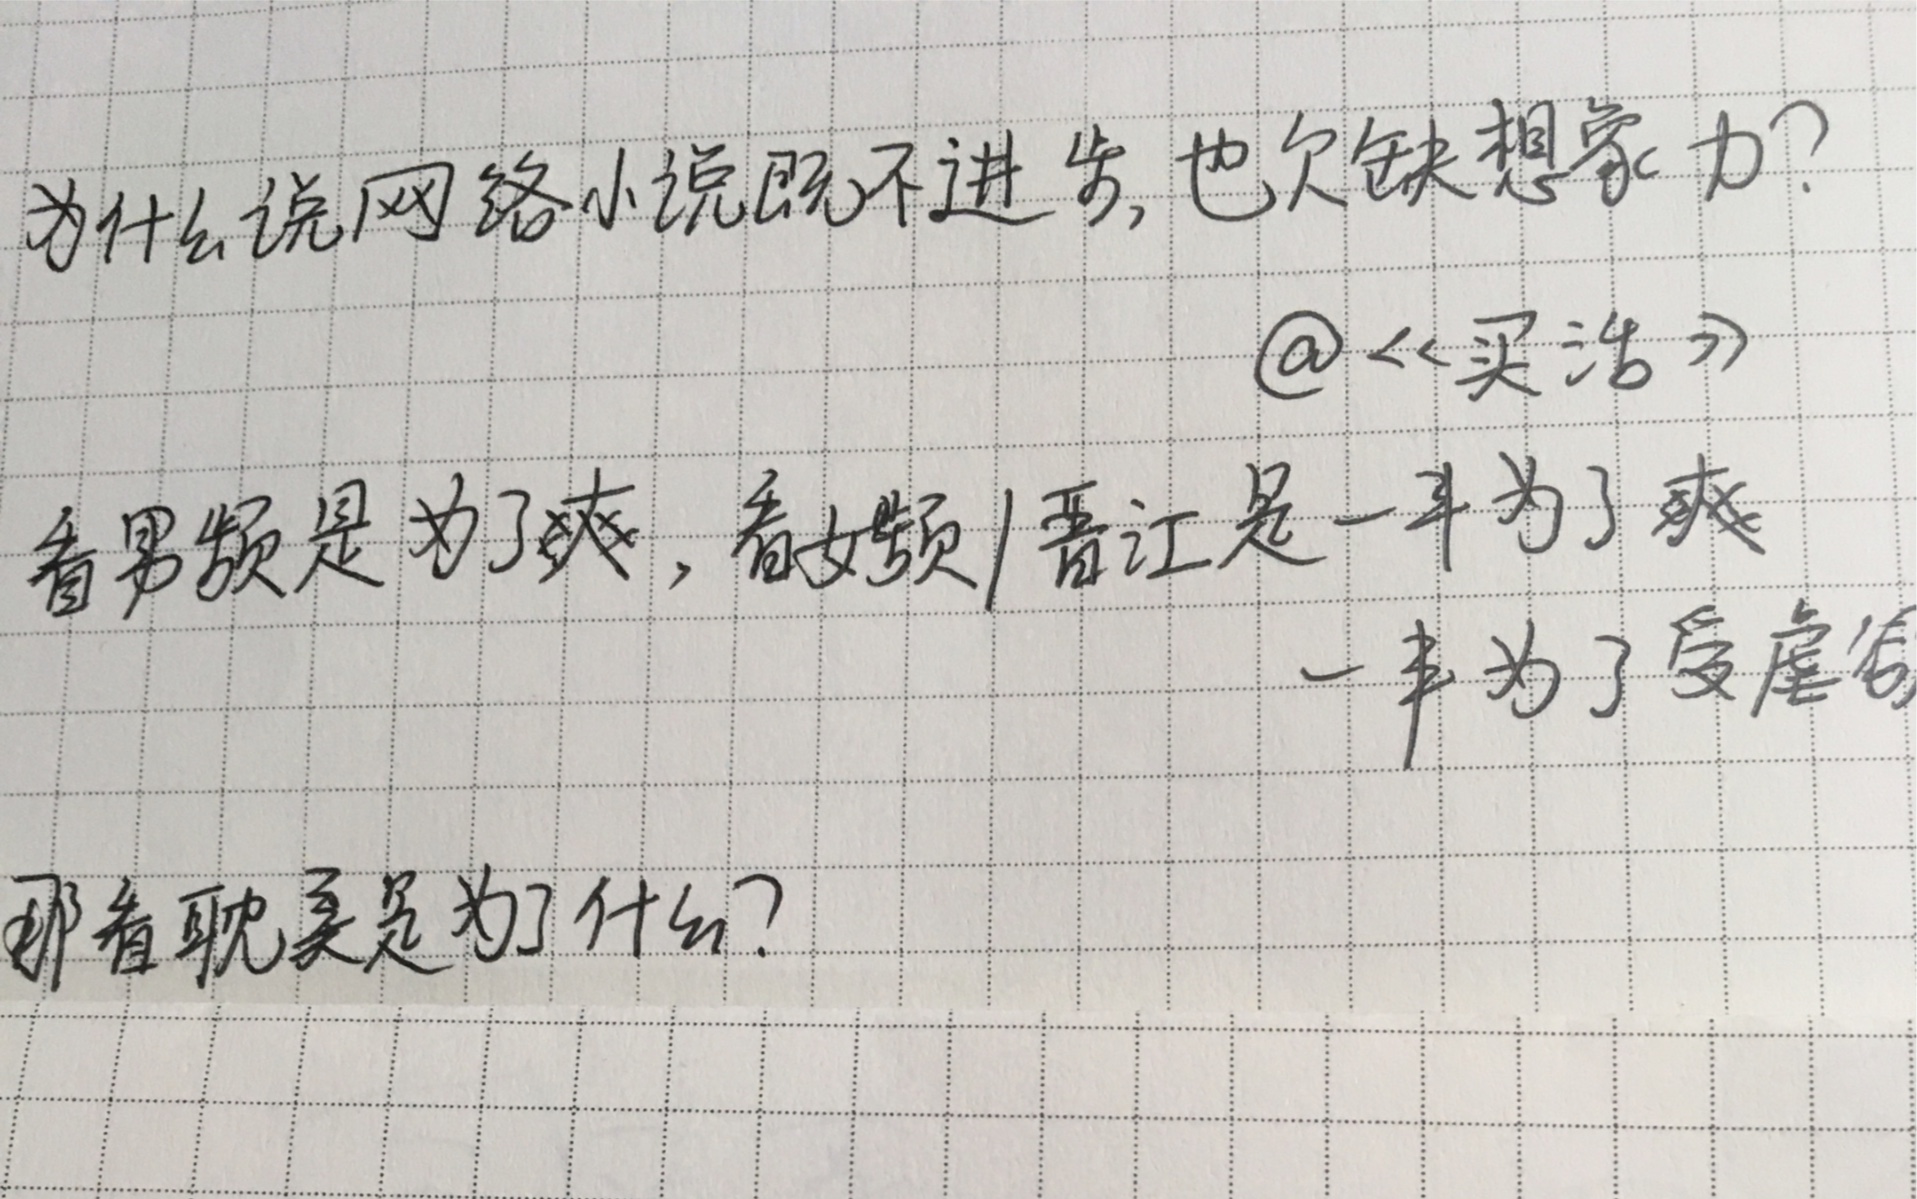 为什么说网络小说既不进步,也欠缺想象力?
@《买活》
看男频是为了爽,看女频/晋江是一半为了爽
一半为了受虐
那看耽美是为了什么?